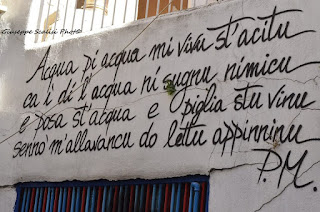 Giuseppe Scalia Photos
Acqua di acqua mi vivu st'acitu
ca i di l'acqua ni sugnu nimicu
e posa st'acqua e piglia stu vinu
sennò m'allavancu do lettu appinninu
P.M.